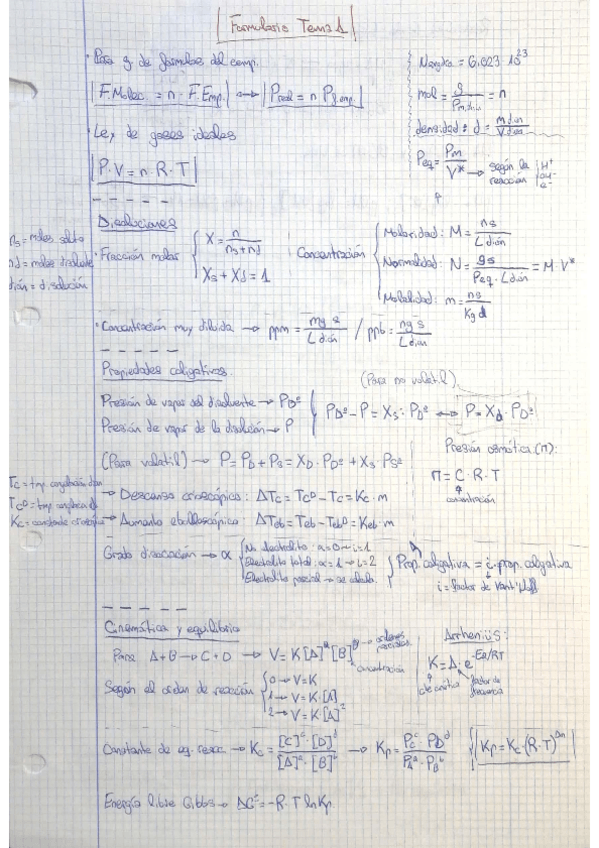 Formulario Tema 1
· Para g de fórmulas del comp.
F. Molec. = n · F. Emp. ⟷ Preal = n P g.emp.
· Ley de gases ideales
P · V = n · R · T
Navgdro = 6.023 10^23
mol = g / Pm = n
densidad: d = m dion / V dion
Peq = Pm / V* → según la reacción H+ OH- e-
Disoluciones
ns = moles soluto
nd = moles disolvente
dión = disolución
· Fracción molar { X = n / (ns + nd)
Xs + Xd = 1
Concentración { Molaridad: M = ns / L dión
Normalidad: N = gs / (Peq · L dión) = M · V*
Molalidad: m = ns / Kg d
· Concentración muy diluida → ppm = mg s / L dión / ppb = ng s / L dión
Propiedades coligativas.
(Para no volátil)
Presión de vapor del disolvente → PDº
Presión de vapor de la disolución → P
PDº - P = Xs · PDº ⟷ P = Xd · PDº
(Para volátil) → P = PD + Ps = XD · PDº + Xs · PSº
Presión osmótica (π):
π = C · R · T
concentración
Tc = tmp. congelación dión
Tcº = tmp. congelac. d
Kc = constante crioscópica
→ Descenso crioscópico: ΔTc = Tcº - Tc = Kc · m
→ Aumento ebulloscópico: ΔTeb = Teb - Tebº = Keb · m
Grado disociación → α { No electrolito: α = 0 → i = 1
Electrolito total: α = 1 → i = 2
Electrolito parcial → se calcula.
Prop. coligativa = i · prop. coligativa
i = factor de Van't Hoff
Cinemática y equilibrio
Para A + B → C + D → V = K [A]^α [B]^β → ordenes parciales
concentración
Según el orden de reacción { 0 → V = K
1 → V = K · [A]
2 → V = K · [A]^2
Arrhenius:
K = A · e^-Ea/RT
cte cinética
factor de frecuencia
Constante de eq. reacc. → Kc = [C]^c · [D]^d / [A]^a · [B]^b → Kp = Pc^c · PD^d / PA^a · PB^b
Kp = Kc (R · T)^Δn
Energía libre Gibbs → ΔGº = -R · T ln Kp.